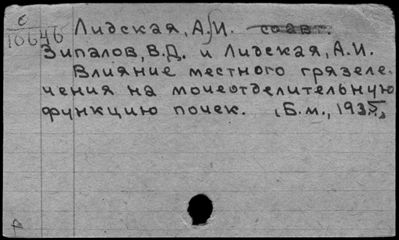 С
10646
Лидская, А.И. соавт.
Зипалов, В.Д. и Лидская, А.И.
Влияние местного грязеле-
чения на мочеотделительную
функцию почек. [Б.м., 1935]